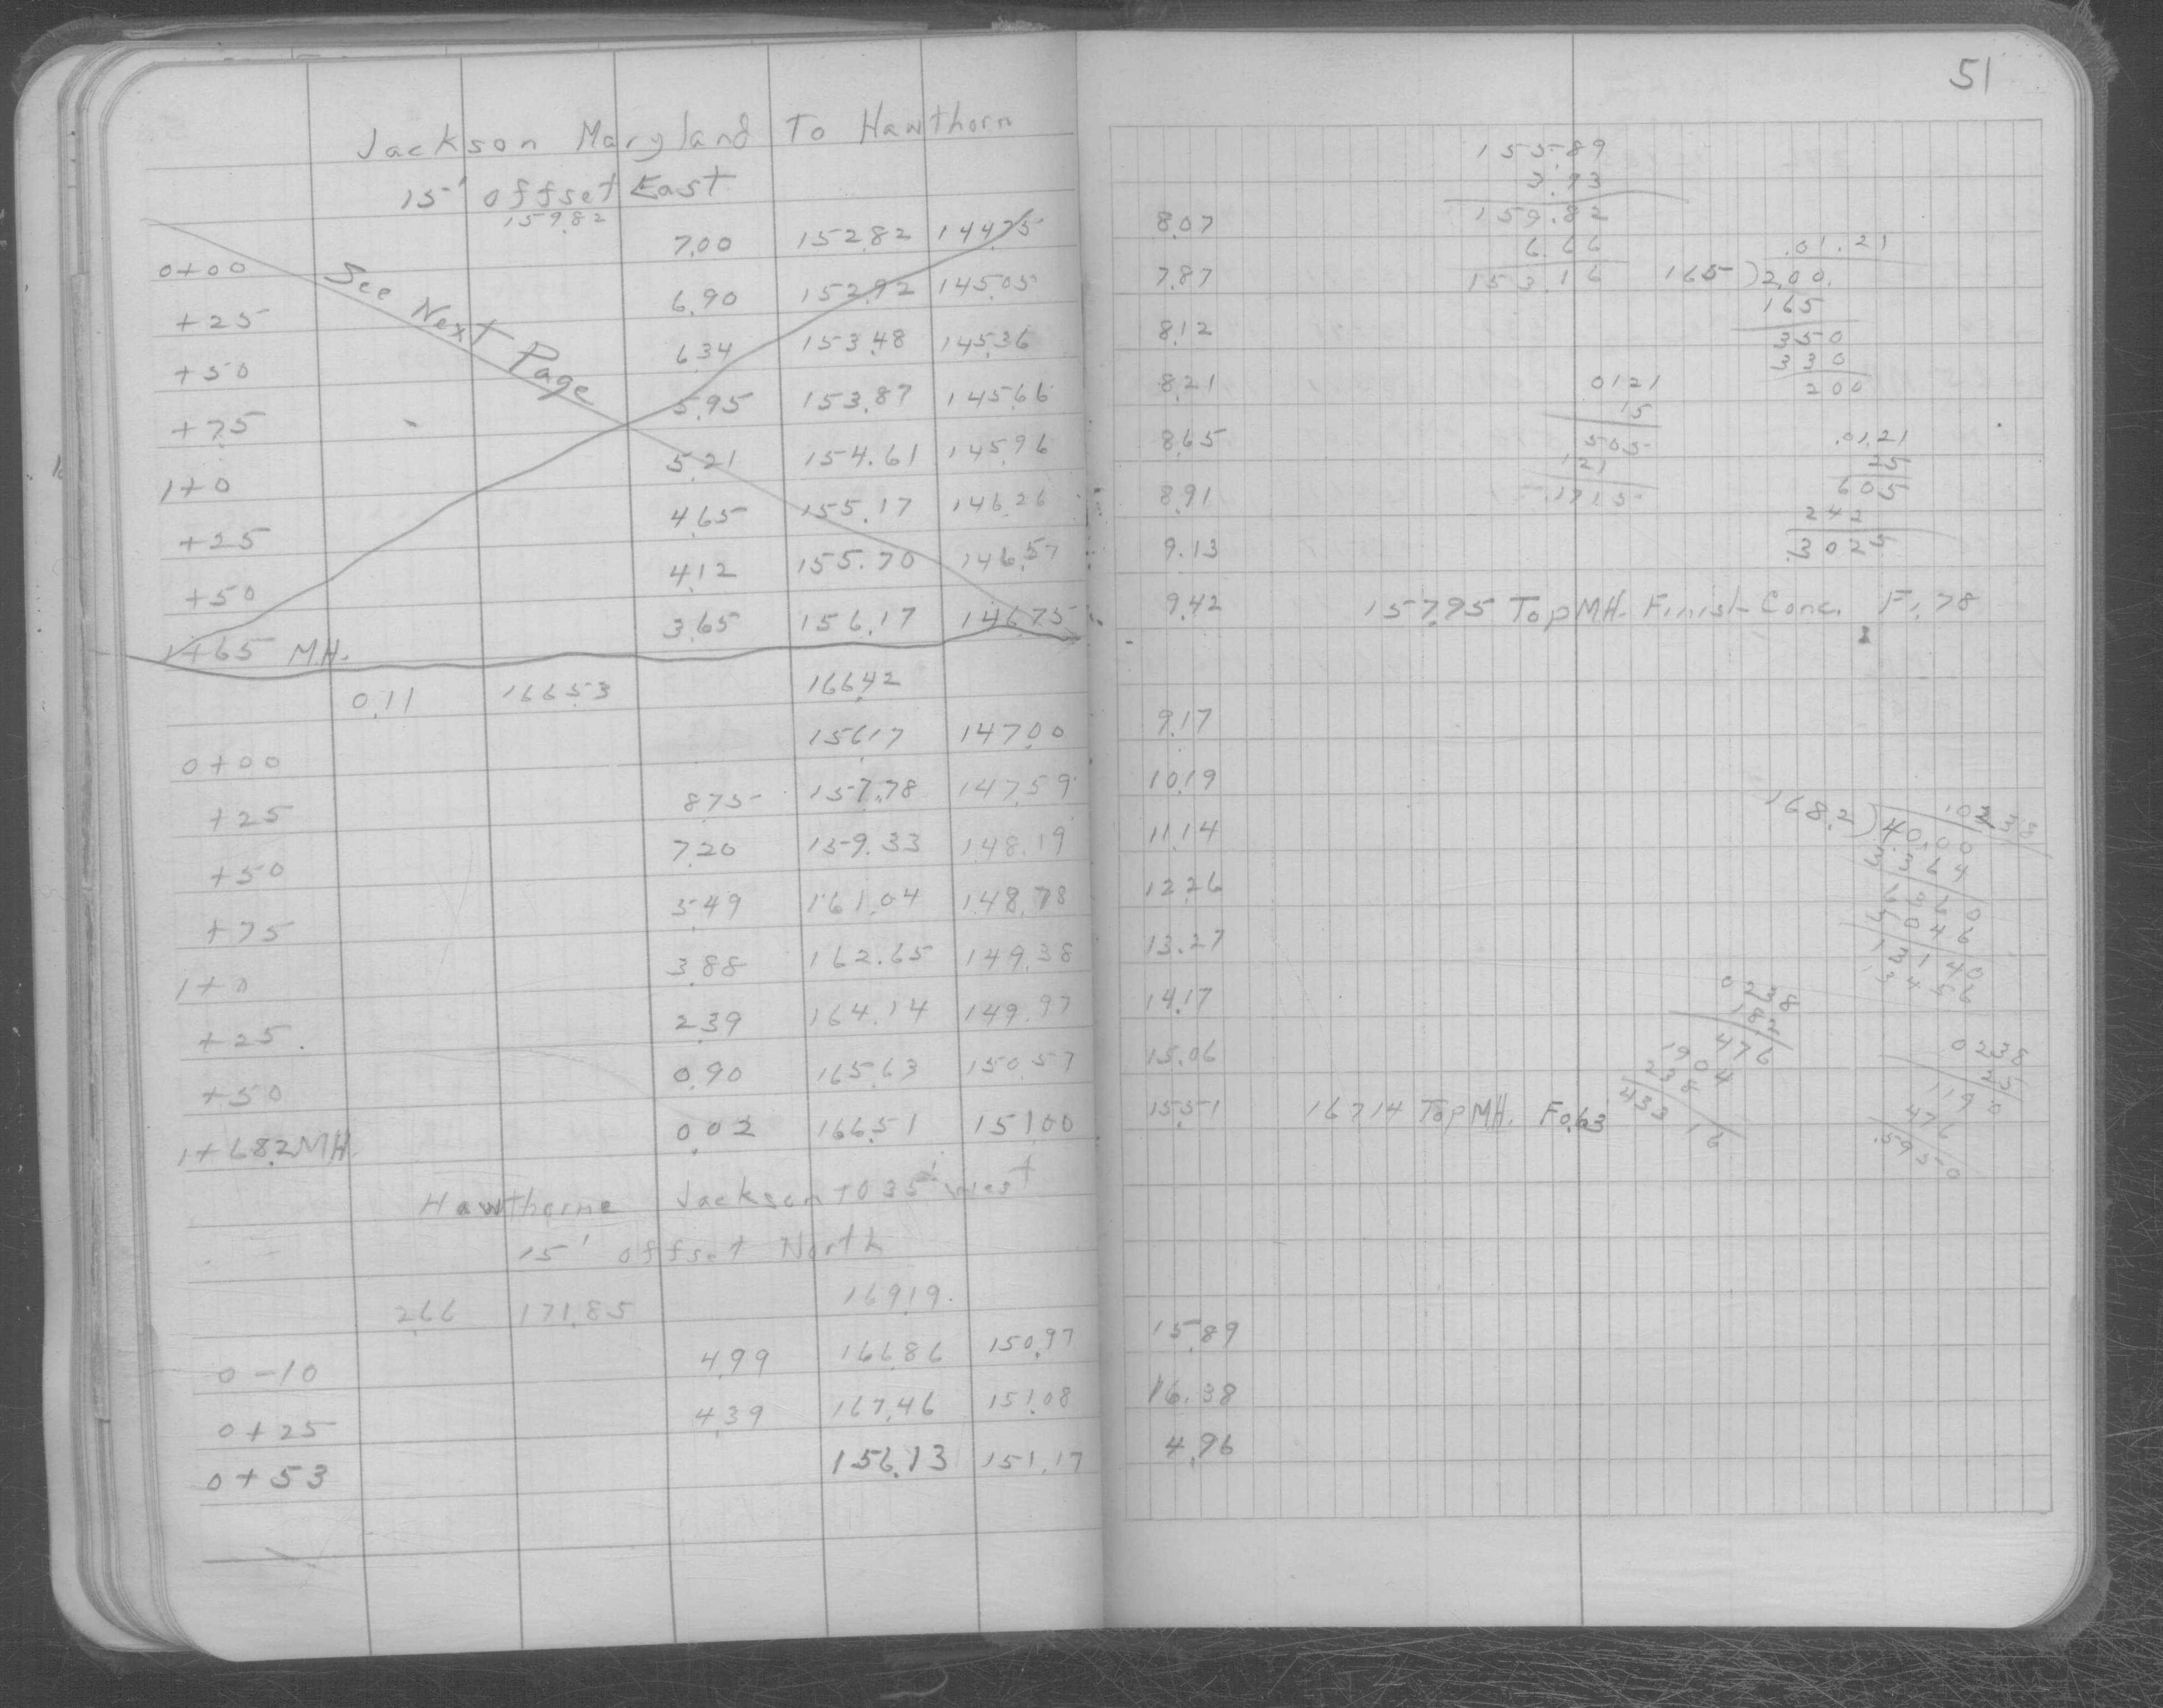 51
Jackson Maryland To Hawthorn
15' offset East
159.82
0+00 7.00 152.82 144.75 8.07
+25 6.90 152.92 145.05 7.87
+50 6.34 153.48 145.36 8.12
+75 5.95 153.87 145.66 8.21
1+0 5.21 154.61 145.96 8.65
+25 4.65 155.17 146.26 8.91
+50 4.12 155.70 146.57 9.13
1+65 M.H. 3.65 156.17 146.75 9.42 157.95 Top M.H. Finish Conc. F1.78
See Next Page
0.11 166.53 166.42
0+00 156.17 147.00 9.17
+25 8.75 157.78 147.59 10.19
+50 7.20 159.33 148.19 11.14
+75 5.49 161.04 148.78 12.26
1+0 3.88 162.65 149.38 13.27
+25 2.39 164.14 149.97 14.17
+50 0.90 165.63 150.57 15.06
1+68.2 MH. 0.02 166.51 151.00 15.51 167.14 Top MH. F0.63
Hawthorne Jackson to 35' west
15' offset North
2.66 171.85 169.19
0-10 4.99 166.86 150.97 15.89
0+25 4.39 167.46 151.08 16.38
0+53 156.13 151.17 4.96
155.89
3.93
159.82
6.66
153.16
.01.21
165 ) 2.00.
165
350
330
200
0121
15
505
121
.1715
.01.21
25
605
242
.3025
168.2 ) 4.0.00
3364
0238
182
476
1904
238
43316
0238
25
1190
476
.5950